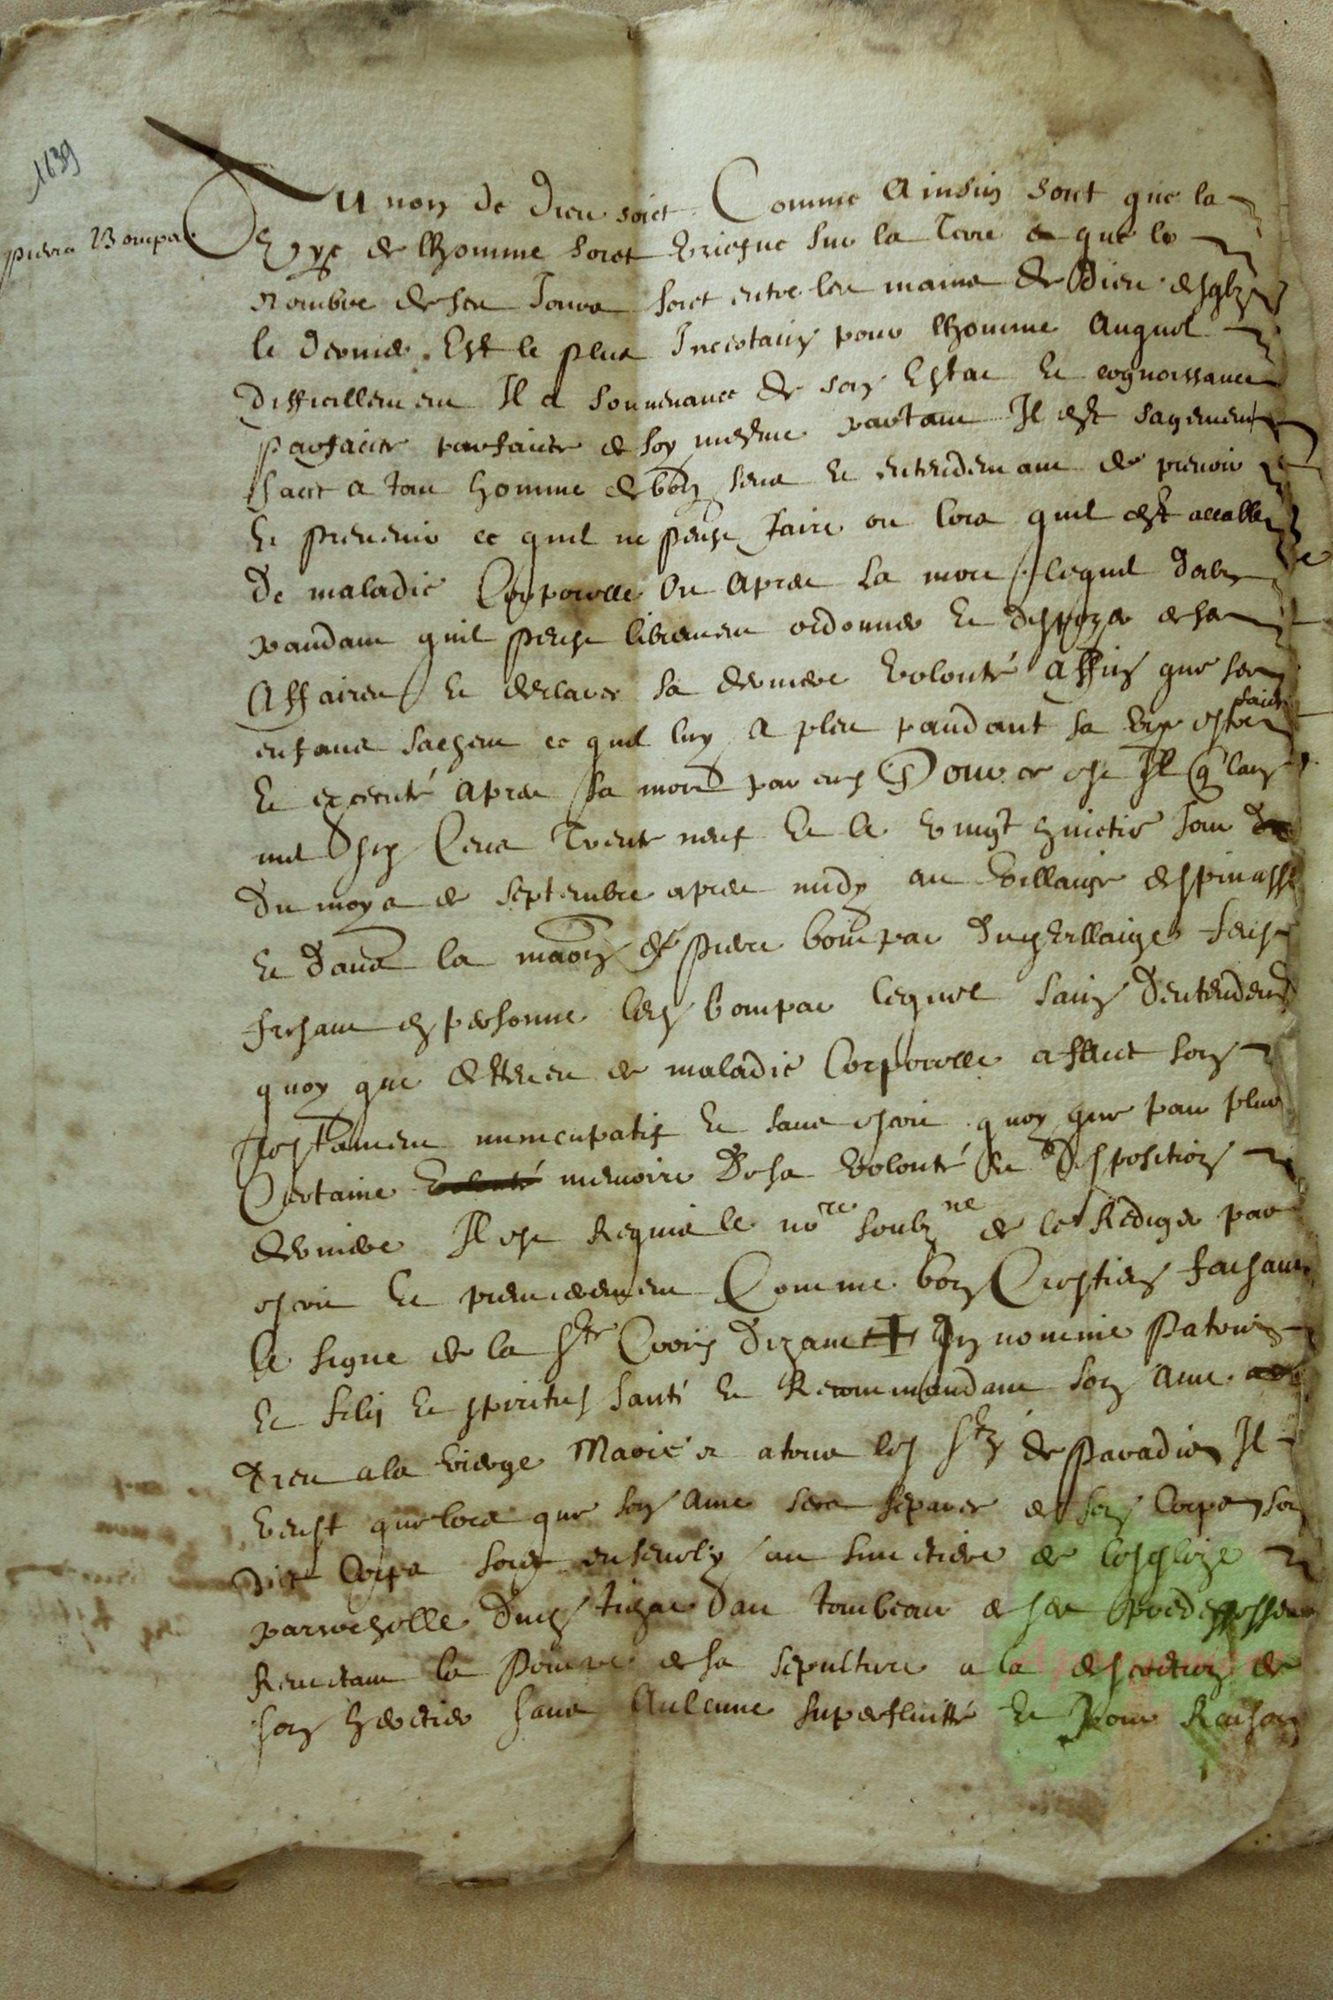 1639
Pierre Bompar
Au nom de Dieu soict Comme Ainsin soict que la
vye de lhomme soict briefue sur la Terre et que le
Nombre de ses Jours soict entre les mains de Dieu
le dernier Est le plus Incertain pour lhomme Auquel
difficillement Il a souuenance de son Estat Et cognoissance
parfaicte parfaicte de soy mesme partant Il est sagement
faict a tout homme de bon sens Et entendement de preuoir
Et preuenir ce quil ne peust faire ou lors quil est accablé
De maladie Corporelle Ou Apres sa mort lequel
pandant quil peust librement ordonner Et disposer de ses
Affaires Et declarer sa derniere volonté Affin que ses
enfans sachent ce quil luy A pleu pandant sa vye estre faict
Et executé Apres sa mort par eux Pour ce est Il q lan
mil six Cens Trente neuf Et le vingt huictie Jour
Du moys de Septembre apres midy au villaige despinasse
Et Dans la maon de Pierre bompar dud villaige
en personne led bompar lequel sain Dentendement
quoy que de maladie Corporelle a faict son
Testament nuncupatif Et sans escrit quoy que pour plus
Certaine volonté memoire De sa volonté Et Disposition
derniere Il est Requis le nore soubzne de le Rediger par
escrit Et premierement Comme bon Crestien faisant
le signe de la Ste Croix Dizant + In nomine Patris
Et filij Et spiritus santi Et Recommandant son Ame
Dieu a la vierge Marie et a tous les Stz de Paradis Il
veust que lors que son Ame sera separee de son Corps son
dict Corps soict enseuely au simetiere de lesglize
parrochelle Dud tombeau de ses predessesseurs
Remettant la de sa sepulture a la discretion de
son heretier sans Aulcune superfluitté Et Pour Raison